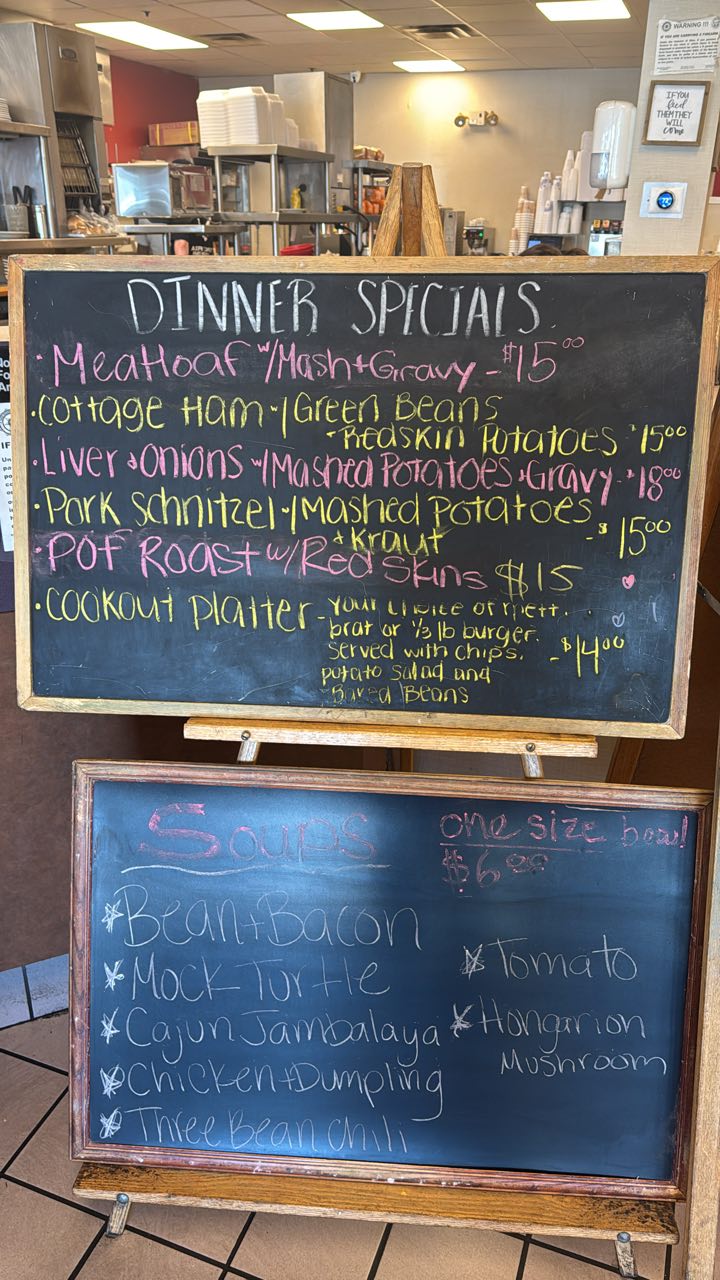 WARNING !!!
IF YOU ARE CARRYING A FIREARM
IF YOU
feed
THEM THEY
WILL
come
72
DINNER SPECIALS
· Meatloaf w/Mash+Gravy - $15⁰⁰
· Cottage Ham w/ Green Beans
+ Redskin Potatoes $15⁰⁰
· Liver & Onions w/ Mashed Potatoes & Gravy - $18⁰⁰
· Pork Schnitzel w/ Mashed Potatoes
+ Kraut - $15⁰⁰
· Pot Roast w/ Red Skins $15
· Cookout Platter - Your choice of mett.
brat or 1/3 lb burger.
served with chips,
potato salad and - $14⁰⁰
Baked Beans
Soups
one size bowl
$6⁰⁰
Bean + Bacon
Mock Turtle
Cajun Jambalaya
Chicken + Dumpling
Three Bean Chili
Tomato
Hongarion
Mushroom